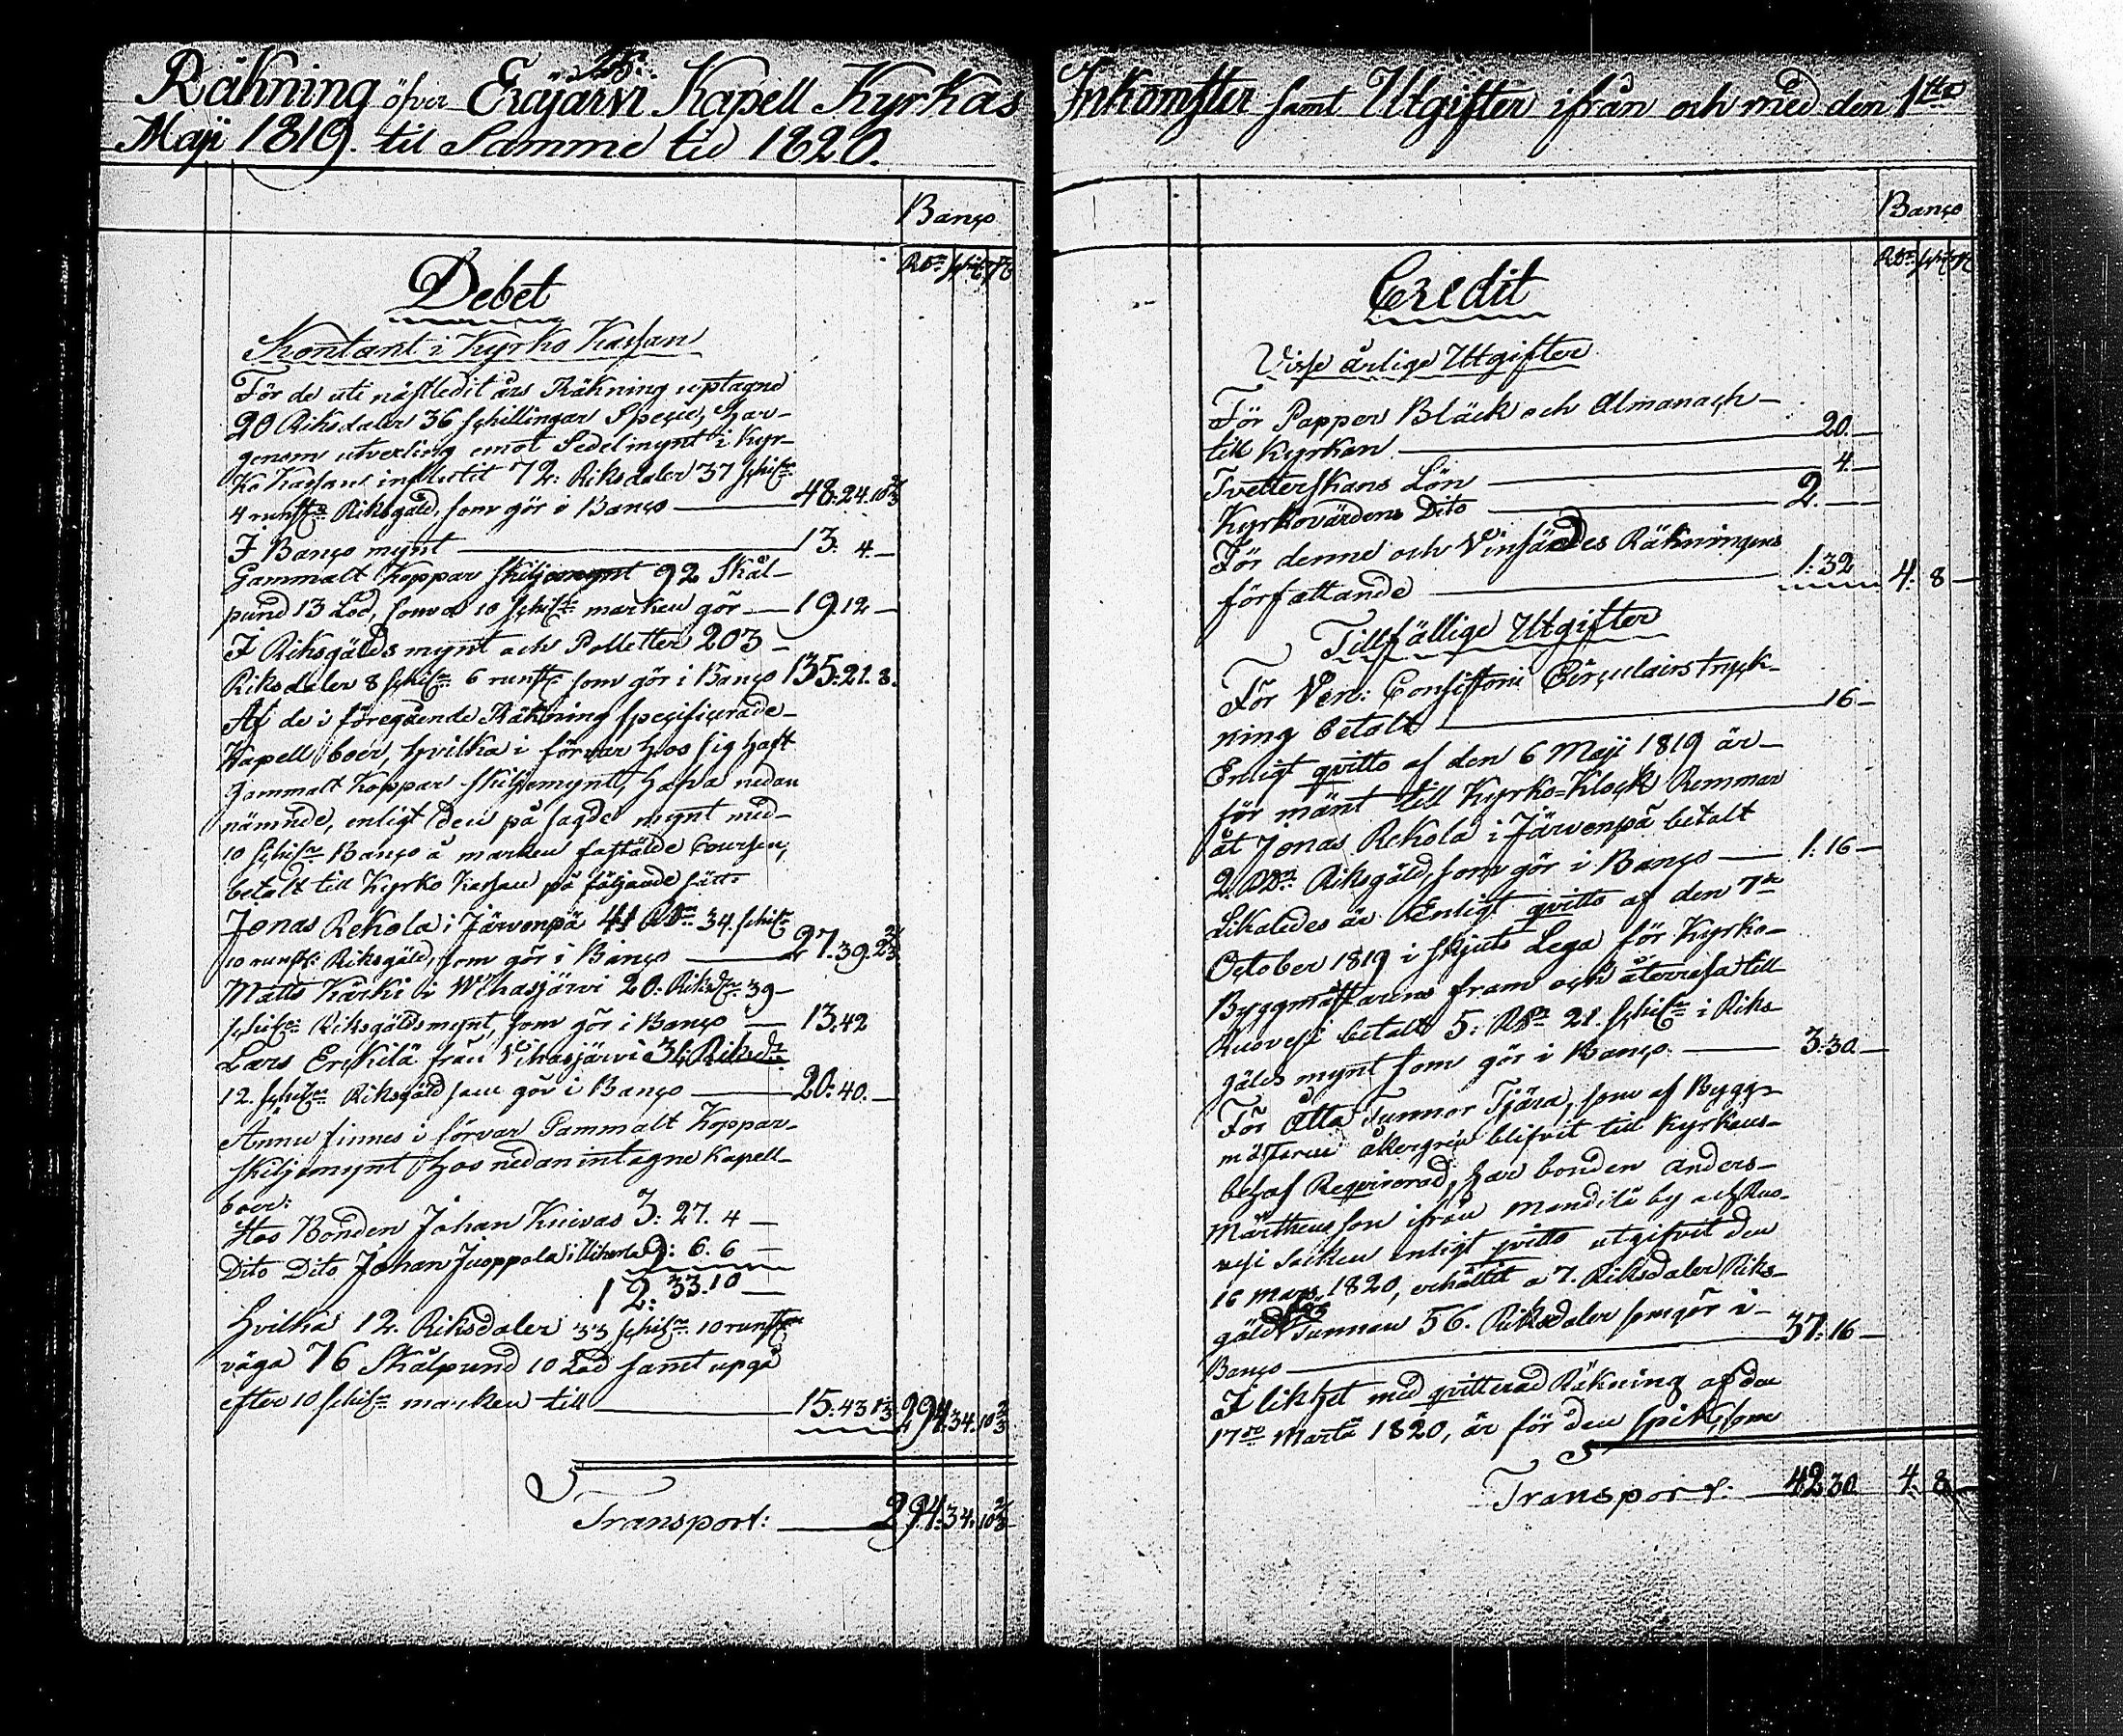 25.
Räkning öfver Eräjärvi Kapell Kyrkas
Maji 1819. til Samme tid 1820.
Banco
RDr skill rst
Debet
Kontant i Kyrko Kassan
För de uti nästledit års Räkning uptagne
20 Riksdaler 36 schillingar Specie, har-
genom utvexling emot Sedelmynt i Kyr-
ko Kassans influtit 72: Riksdaler 37 schilr
4 runstr Riksgäld, som gör i Banco — 48:24.10 2/3
I Banco mynt — 13: 4.—
Gammalt Koppar Skiljemynt 92 Skål-
pund 13 Lod, som a 10 schilr marken gör — 19.12 —
I Riksgälds mynt och Polletter 203 —
Riksdaler 8 schilr 6 runstr som gör i Banco 135:21.8.
Af de i föregående Räkning specificerade-
Kapellboer, hvilka i förvar hos sig haft
gammalt Koppar Skiljemynt, hafva nedan
nämnde, enligt den på sagde mynt med-
10 schilr Banco à marken fastälde Coursen,
betalt till Kyrko Kassan på följande sätt:
Jonas Rekola i Järvenpä 41 RDr 34. schilr
10 runstr Riksgäld, som gör i Banco — 27.39.2 2/3
Matts Kärki i Wihasjärvi 20. Riksdr 39-
schilr Riksgäldsmynt, som gör i Banco — 13.42
Lars Erckilä från Vihasjärvi 31. Riksdr
12. schilr Riksgäld som gör i Banco — 20:40.—
Ännu finnes i förvar Gammalt Koppar-
skiljemynt hos nedan intagne Kapell-
boer:
Hos Bonden Johan Knivas 3: 27. 4 —
Dito Dito Johan Juoppola i Uiherla 9: 6. 6 —
12: 33.10 —
Hvilka 12. Riksdaler 33 schilr 10 runstr
väga 76 Skålpund 10 Lod samt upgå
efter 10 schilr marken till — 15:43 1 1/3 294:34.10 2/3
Transport: — 294:34.10 2/3
Inkomster samt Utgifter ifrån och med den 1sta
Banco
RDr skill rst
Credit
Visse årlige Utgifter
För Papper Bläck och Almanach-
till Kyrkan — 20.—
Tvetterskans Lön — 4.—
Kyrkovärdens Dito — 2.—
För denne och Vinsädes Räkningens
författande — 1:32 4: 8 —
Tillfällige Utgifter
För Ven: Consistorii Circulairs tryck-
ning betalt — 16 —
Enligt qvitto af den 6 Maji 1819 är-
för mänt till Kyrko=Klock Remmar
åt Jonas Rekola i Järvenpä betalt
2. RDr Riksgäld, som gör i Banco — 1:16 —
Likaledes är Enligt qvitto af den 7de
October 1819 i skjuts Lega för Kyrko-
Byggmästarens fram och återresa till
Ruovesi betalt 5: RDr 21. schilr i Riks-
gälds mynt som gör i Banco. — 3:30 —
För Åtta Tunnor Tjära, som af Bygg-
mästaren Åkergren blifvit till Kyrkans-
behof Reqvirerad, har bonden Anders-
Märthensson ifrån Mandila by och Ruo-
vesi Socken enligt qvitto utgifvit den
16 Mars, 1820, erhållit a 7. Riksdaler Riks-
gäld för Tunnan 56. Riksdaler som gör i-
Banco — 37:16 —
I likhet med qvitterad Räkning af den
17de Martii 1820, är för den Spik, som
Transport: — 42:30 4. 8 —